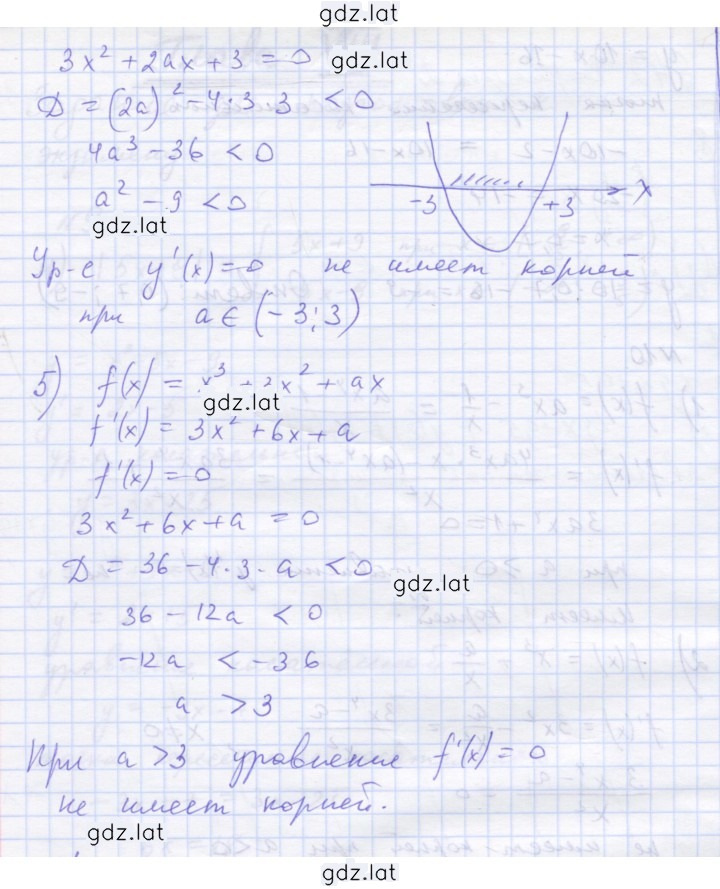 gdz.lat
3x² + 2ax + 3 = 0
gdz.lat
D = (2a)² - 4·3·3 < 0
4a³ - 36 < 0
a² - 9 < 0
-3 +3 x
gdz.lat
Ур-е y'(x) = 0 не имеет корней
при a ∈ (-3; 3)
5) f(x) = x³ + 2x² + ax
gdz.lat
f'(x) = 3x² + 6x + a
f'(x) = 0
3x² + 6x + a = 0
D = 36 - 4·3·a < 0
gdz.lat
36 - 12a < 0
-12a < -36
a > 3
При a > 3 уравнение f'(x) = 0
не имеет корней.
gdz.lat
gdz.lat